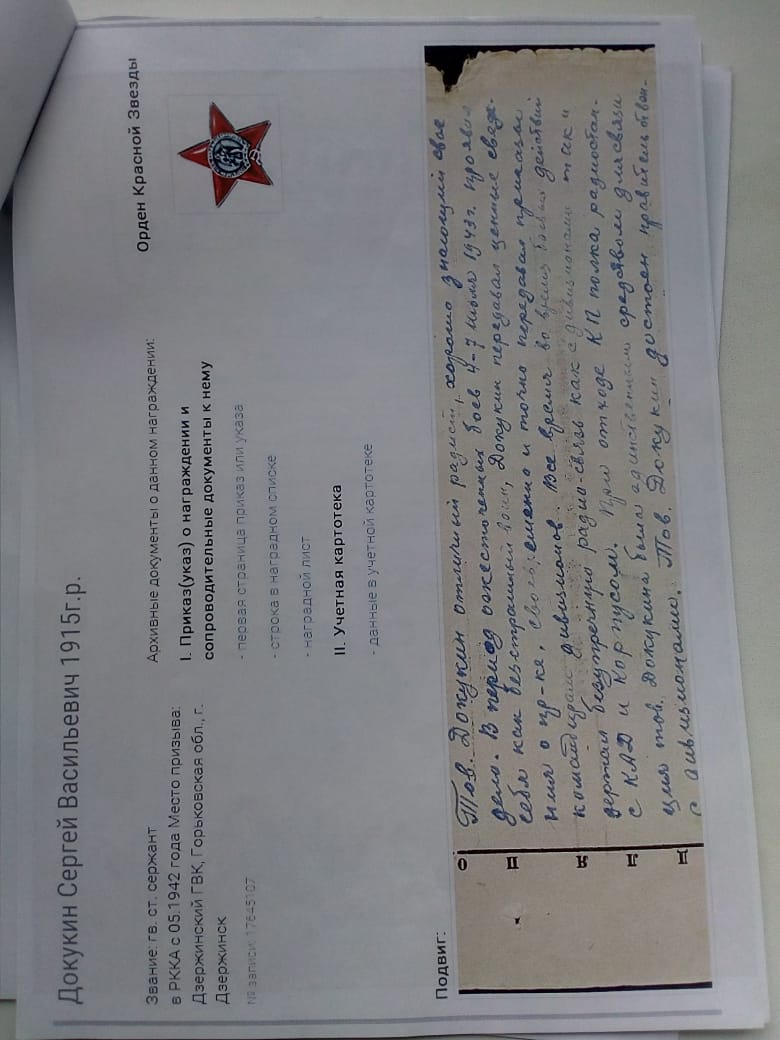 Докукин Сергей Васильевич 1915г.р.
Звание: гв. ст. сержант
в РККА с 05.1942 года Место призыва:
Дзержинский ГВК, Горьковская обл., г.
Дзержинск
№ записи: 17645107
Архивные документы о данном награждении:
I. Приказ(указ) о награждении и
сопроводительные документы к нему
- первая страница приказ или указа
- строка в наградном списке
- наградной лист
II. Учетная картотека
- данные в учетной картотеке
Орден Красной Звезды
Подвиг:
Тов. Докукин отличный радист, хорошо знающий свое
дело. В период ожесточенных боев 4-7 июля 1943г. проявил
себя как бесстрашный воин, Докукин передавал ценные сведе-
ния о пр-ке, своевременно и точно передавал приказы
командирам дивизионов. Все время во время боевых действий
держал безупречную радио-связь как с дивизионами так и
с КАД и Корпусом. При отходе КП полка радиостан-
ция тов. Докукина была единственным средством для связи
с дивизионами. Тов. Докукин достоин правительствен-